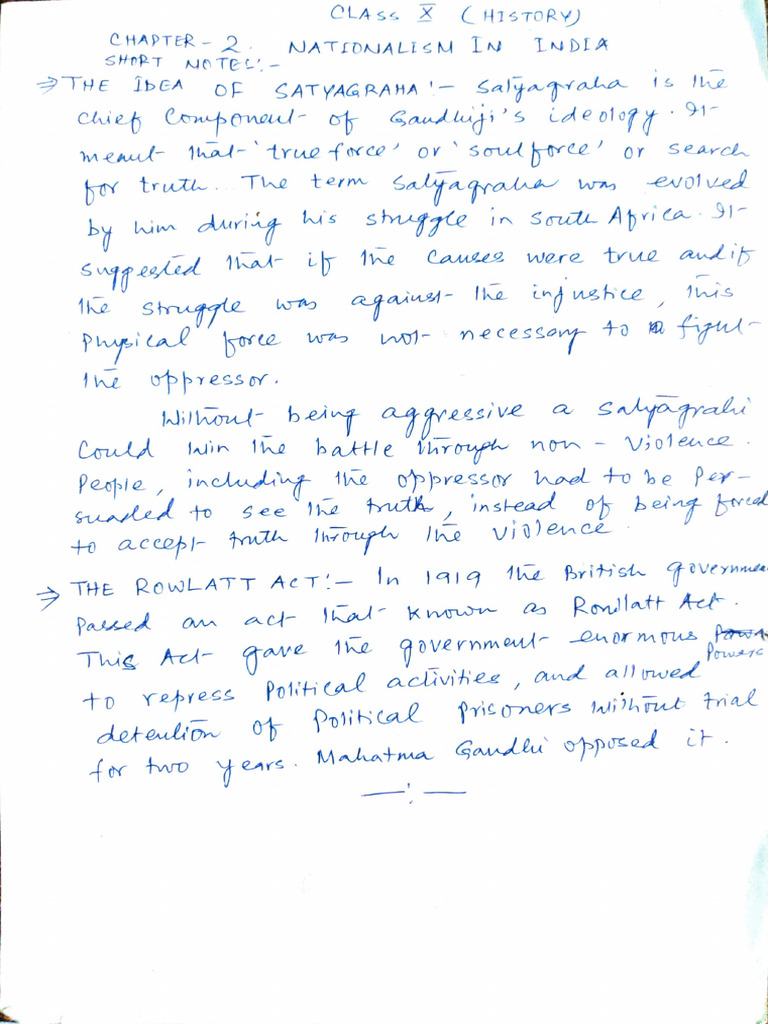 CLASS X (HISTORY)
CHAPTER - 2. NATIONALISM IN INDIA
SHORT NOTES:-
⇒ THE IDEA OF SATYAGRAHA:- Satyagraha is the
chief component of Gandhiji's ideology. It
meant that 'true force' or 'soul force' or search
for truth. The term Satyagraha was evolved
by him during his struggle in South Africa. It
suggested that if the causes were true and if
the struggle was against the injustice, this
physical force was not necessary to fight
the oppressor.
Without being aggressive a Satyagrahi
could win the battle through non - violence.
People, including the oppressor had to be per-
suaded to see the truth, instead of being forced
to accept truth through the violence.
⇒ THE ROWLATT ACT:- In 1919 the British governmen
passed an act that known as Rowllatt Act.
This Act gave the government enormous
powers
to repress political activities, and allowed
detention of political prisoners without trial
for two years. Mahatma Gandhi opposed it.